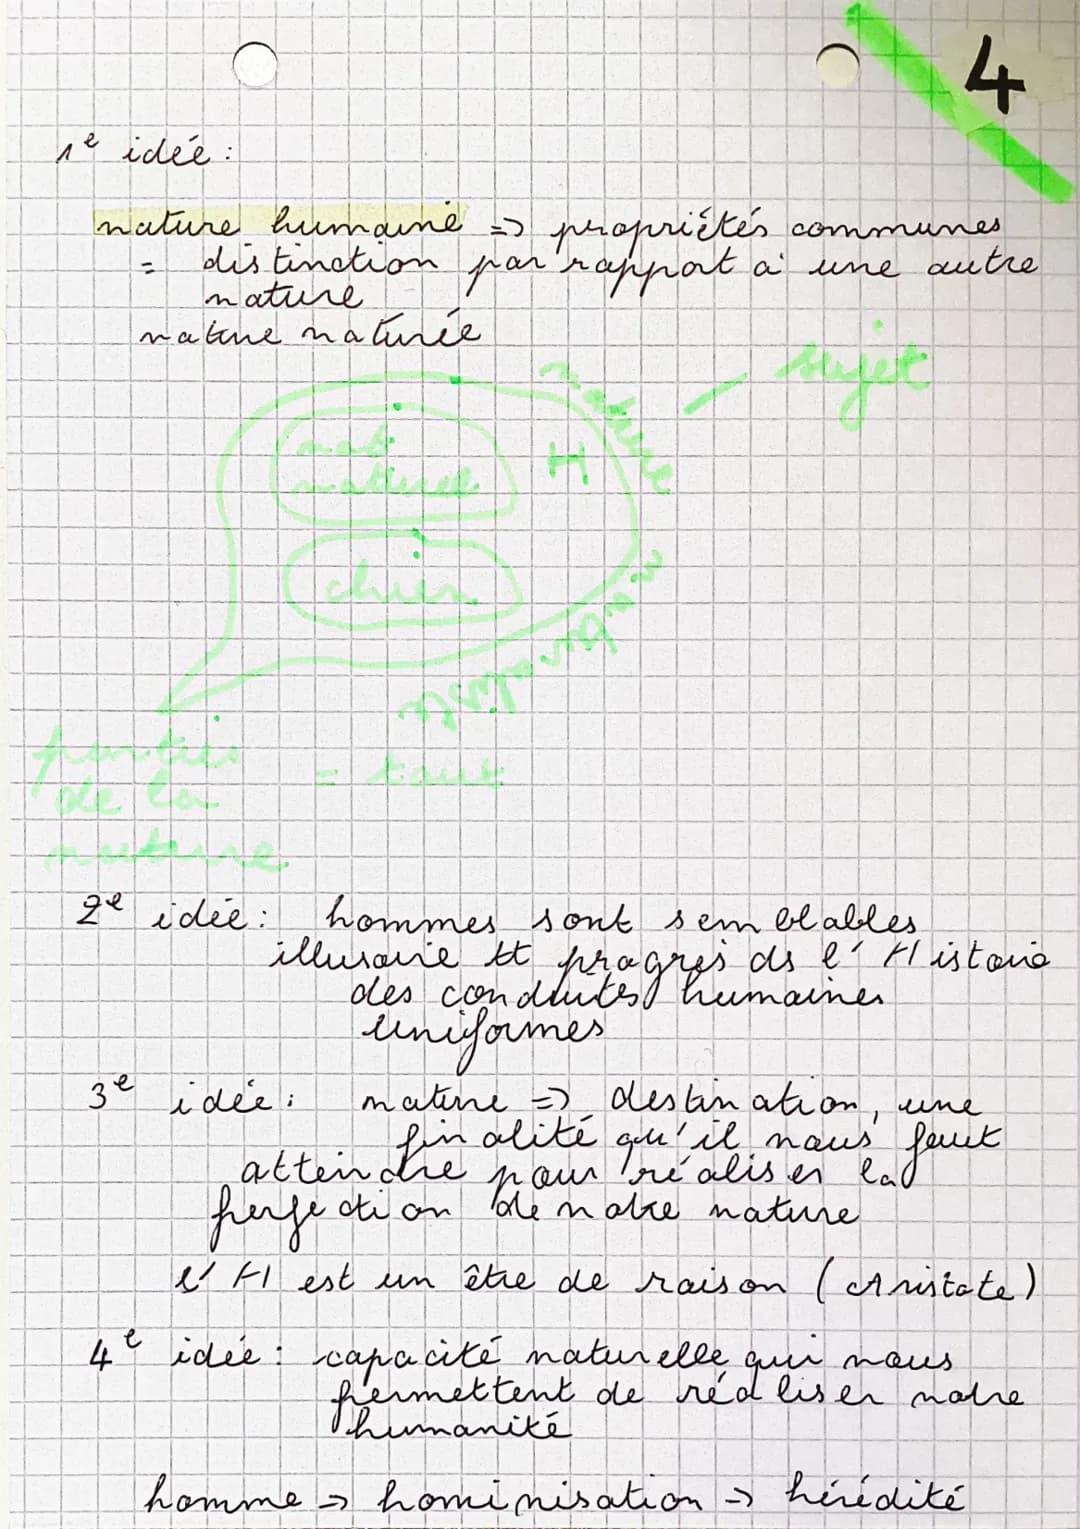 4
1e idée :
nature humaine => propriétés communes
= distinction par rapport à une autre
nature
nature naturée
sujet
nature
nat.
naturel
H
chien
naturaliste
parties
de la
nature
= tout
2e idée : hommes sont semblables
illusoire tt progrès ds l' Histoire
des conduites humaines
uniformes
3e idée : nature => destination, une
finalité qu'il nous faut
atteindre pour réaliser la
perfection de notre nature
l' H est un être de raison (Aristote)
4e idée : capacité naturelle qui nous
permettent de réaliser notre
humanité
homme => hominisation -> hérédité